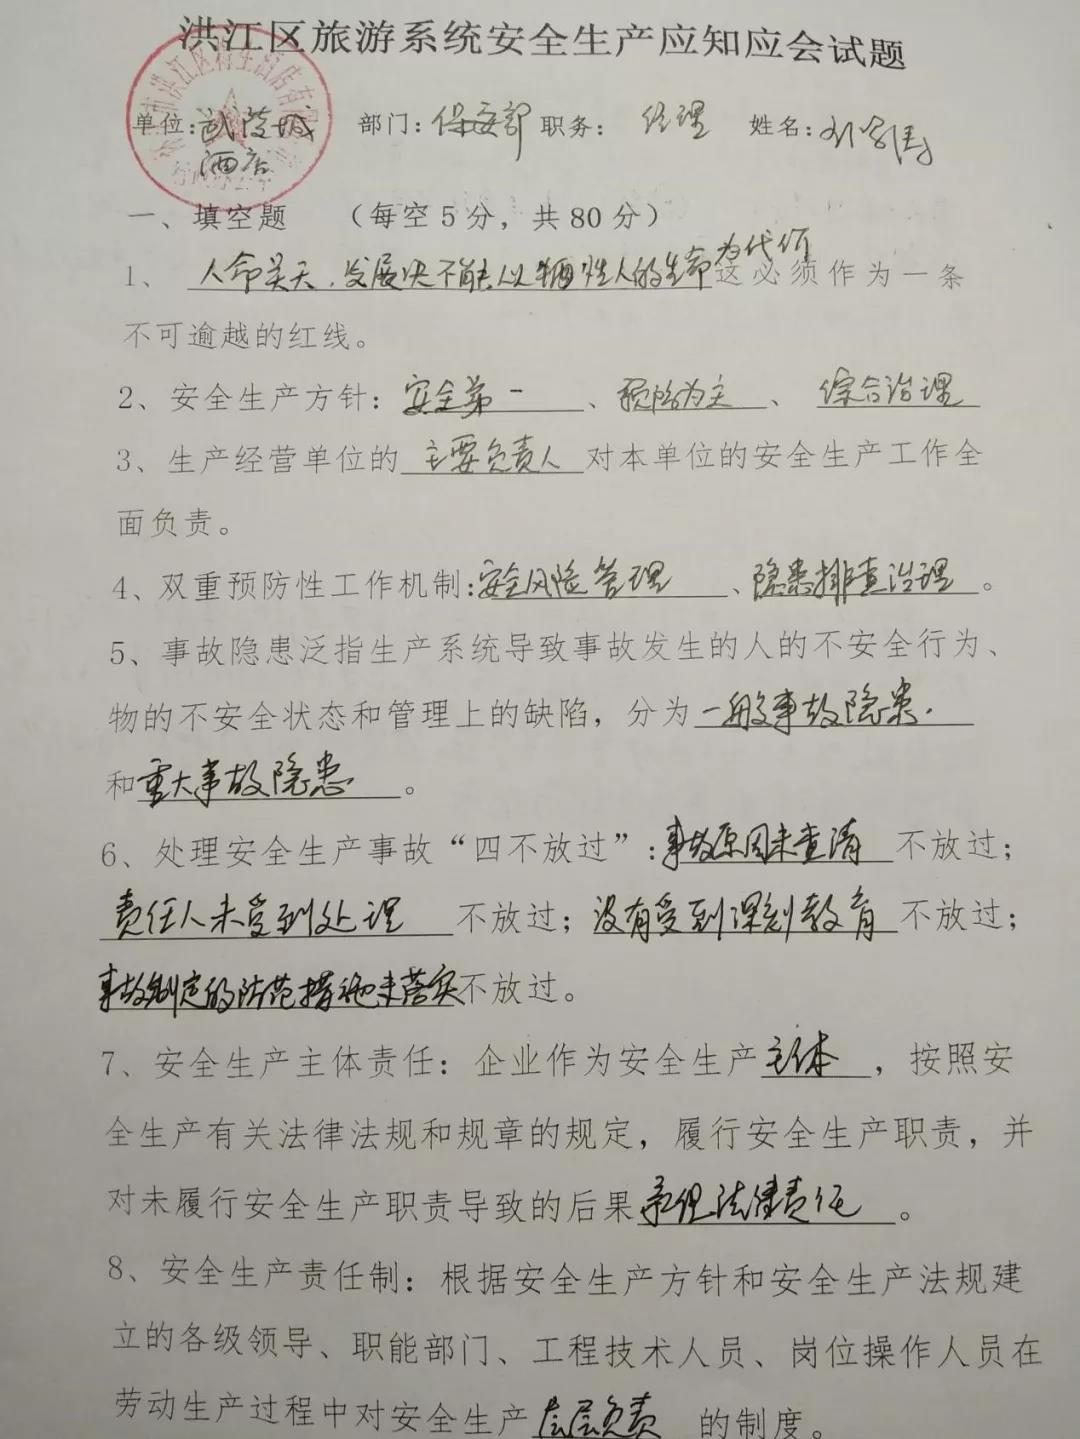 洪江区旅游系统安全生产应知应会试题
单位:武陵城酒店 部门:保安部 职务: 经理 姓名:刘
一、填空题 （每空5分，共80分）
1、人命关天,发展决不能以牺牲人的生命为代价这必须作为一条
不可逾越的红线。
2、安全生产方针:安全第一、预防为主、综合治理
3、生产经营单位的主要负责人对本单位的安全生产工作全
面负责。
4、双重预防性工作机制:安全风险管理、隐患排查治理。
5、事故隐患泛指生产系统导致事故发生的人的不安全行为、
物的不安全状态和管理上的缺陷，分为一般事故隐患.
和重大事故隐患。
6、处理安全生产事故“四不放过”:事故原因未查清不放过;
责任人未受到处理 不放过;没有受到深刻教育不放过;
事故制定的防范措施未落实不放过。
7、安全生产主体责任: 企业作为安全生产主体，按照安
全生产有关法律法规和规章的规定，履行安全生产职责，并
对未履行安全生产职责导致的后果承担法律责任。
8、安全生产责任制: 根据安全生产方针和安全生产法规建
立的各级领导、职能部门、工程技术人员、岗位操作人员在
劳动生产过程中对安全生产层层负责的制度。